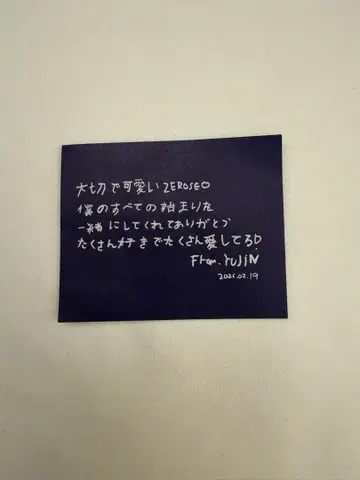 大切で可愛い ZEROSEO
僕のすべての始まりを
一緒にしてくれてありがとう
たくさん好きでたくさん愛してるD.
From. YUJIN
2025.02.19